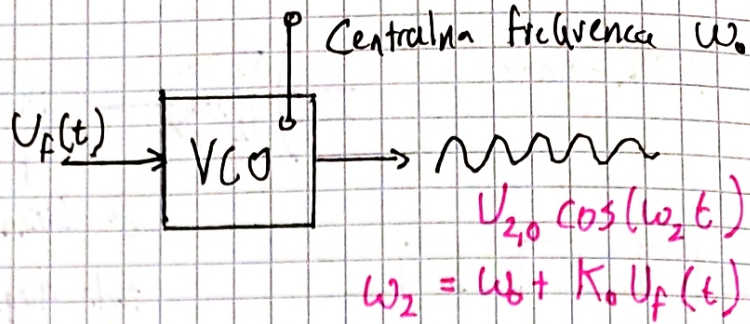 Centralna frekvenca ω₀
U_f(t)
VCO
U_{2,0} cos(ω₂t)
ω₂ = ω₀ + K₀ U_f(t)